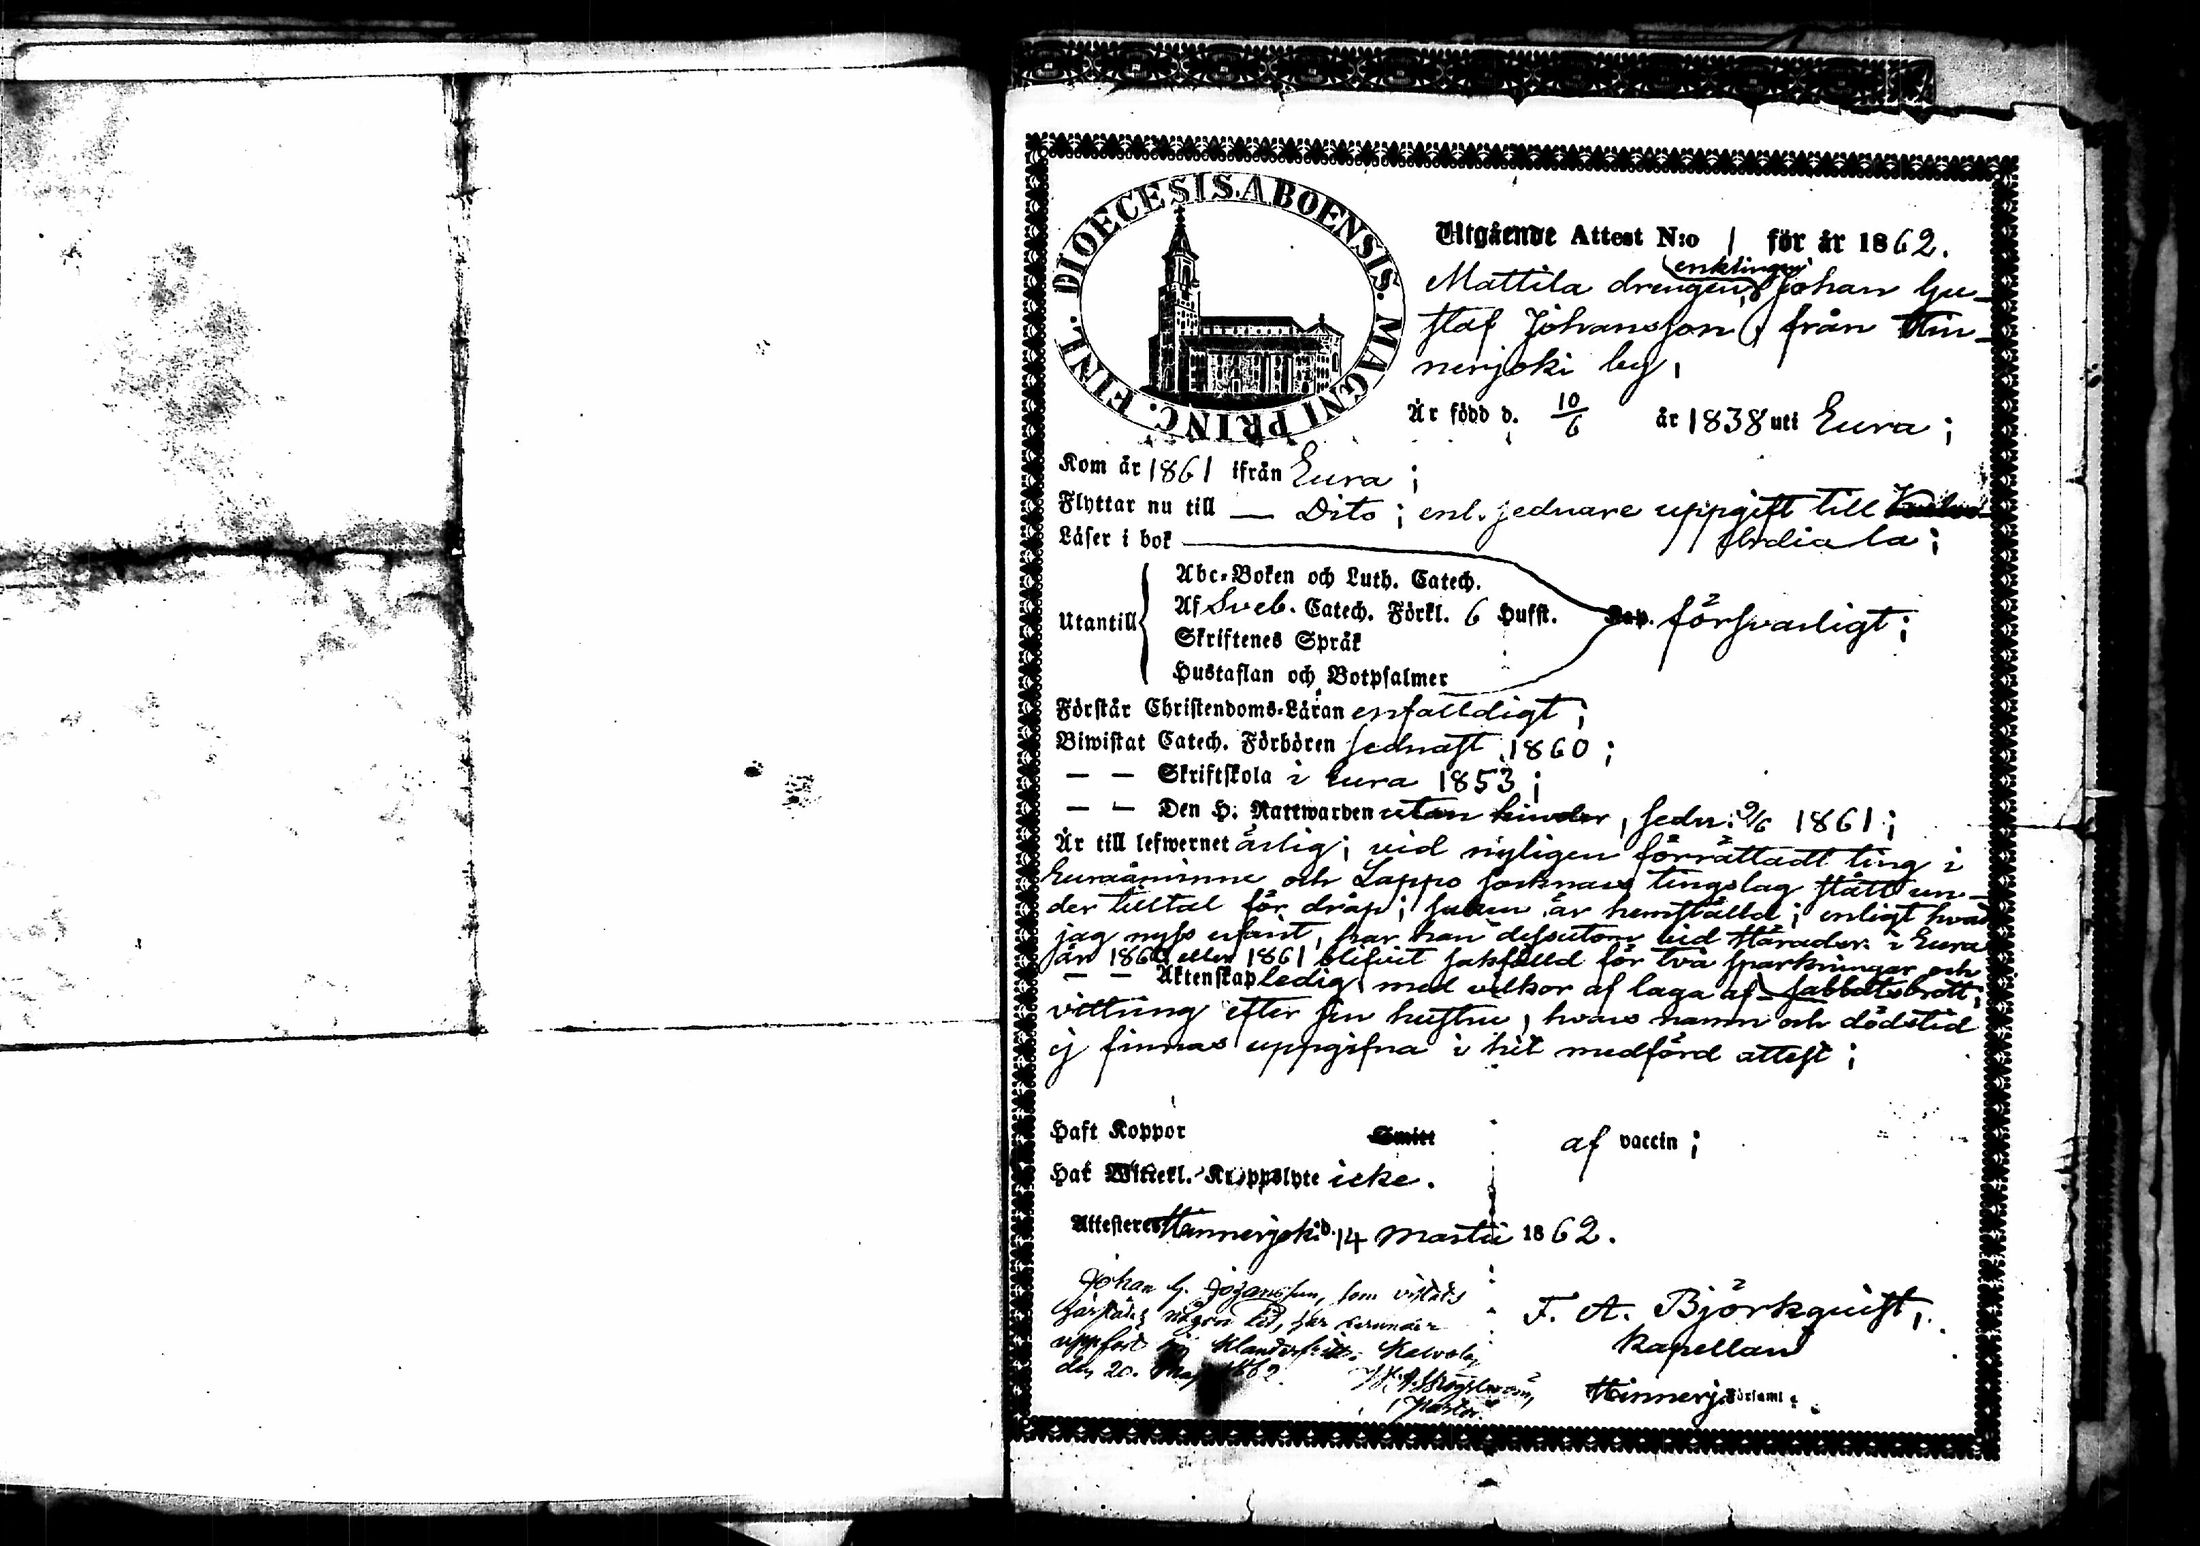 DIOECESIS ABOENSIS. MAGNI PRINC. FINL.
Utgående Attest N:o 1 för år 1862.
enklingen
Mattila drengen, Johan Gu-
staf Johansson, från Hin-
nerjoki by,
Är född d. 10/6 år 1838 uti Eura;
Kom år 1861 ifrån Eura;
Flyttar nu till — Dito; enl. sednare uppgift till
Läser i bok
Abc-Boken och Luth. Catech.
Utantill Af Sveb. Catech. Förkl. 6 Hufst. Kap. försvarligt;
Skriftenes Språk
Hustaflan och Botpsalmer
Förstår Christendoms-Läran enfalldigt;
Biwistat Catech. Förhören sednast 1860;
— — Skriftskola i Eura 1853;
— — Den H. Nattwarden utan hinder, sedn. 9/6 1861;
Är till lefwernet ärlig; vid nyligen förrättadt ting i
Euraåminne och Lappo socknars tingslag stått un-
der tilltal för dråp; saken är hemställd; enligt hvad
jag nyss erfarit, har han dessutom vid Häradsr. i Eura
år 1860 eller 1861 blifvit sakfälld för två sparkningar och
sabbatsbrott;
— — Äktenskap ledig, med vilkor af laga af-
vittring efter sin hustru, hvars namn och dödstid
ej finnas uppgifna i hit medförd attest;
Haft Koppor Smitt af vaccin;
Har Witterl. Kroppslyte icke.
Attesteres Hinnerjoki d. 14 Martii 1862.
Johan G. Johansson, som vistats
härstädes någon tid, har derunder
uppfört sig klanderfritt. Kalvola
den 20. Maj 1862.
Pastor.
F. A. Björkquist,
Kapellan
Hinnerj. Församl.